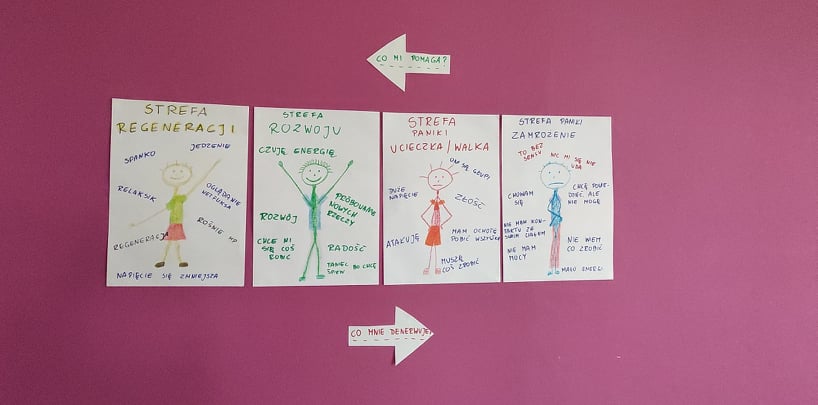 CO MI POMAGA?
STREFA
REGENERACJI
SPANKO
JEDZENIE
RELAKSIK
OGLĄDANIE
NETFLIKSA
ROŚNIE HP
REGENERACJA
NAPIĘCIE SIĘ ZMNIEJSZA
STREFA
ROZWOJU
CZUJĘ ENERGIĘ
PRÓBOWANIE
NOWYCH
RZECZY
ROZWÓJ
CHCE MI
SIĘ COŚ
ROBIĆ
RADOŚĆ
TANIEC BO CHCĘ
ŚPIEW
STREFA
PANIKI
UCIECZKA/WALKA
ONI SĄ GŁUPI
DUŻE
NAPIĘCIE
ZŁOŚĆ
ATAKUJĘ
MAM OCHOTĘ
POBIĆ
MUSZĘ
COŚ ZROBIĆ
STREFA PANIKI
ZAMROŻENIE
TO BEZ
SENSU
NIC MI SIĘ NIE
UDA
CHOWAM
SIĘ
CHCĘ POWIE-
DZIEĆ, ALE
NIE MOGĘ
NIE MAM KON-
TAKTU ZE
SWOIM CIAŁEM
NIE MAM
MOCY
NIE WIEM
CO ZROBIĆ
MAŁO ENERGI
CO MNIE DENERWUJE?